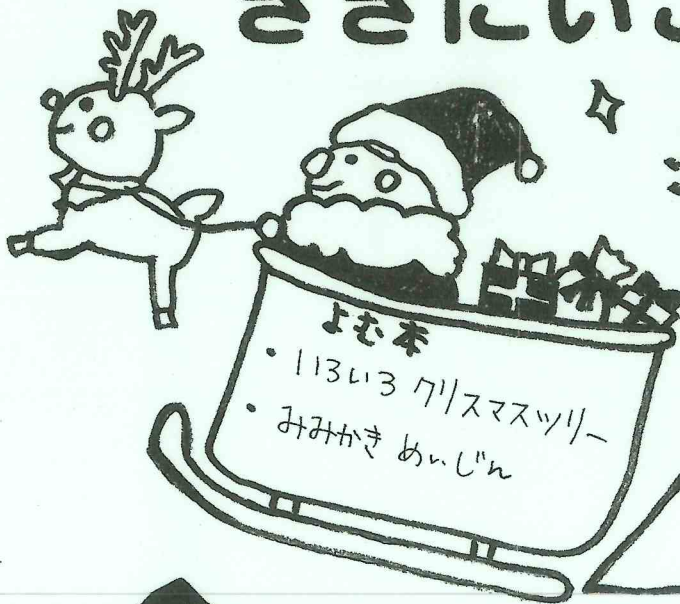 ききにいこ
よむ本
・いろいろ クリスマスツリー
・みみかき めいじん